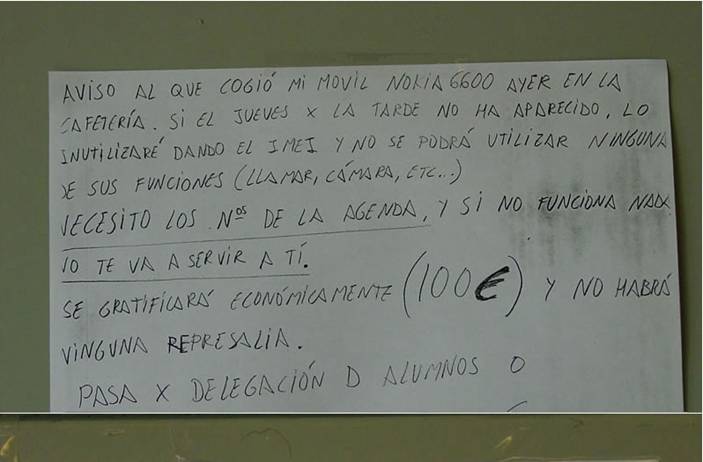 AVISO AL QUE COGIÓ MI MOVIL NOKIA 6600 AYER EN LA
CAFETERÍA. SI EL JUEVES X LA TARDE NO HA APARECIDO, LO
INUTILIZARÉ DANDO EL IMEI Y NO SE PODRÁ UTILIZAR NINGUNA
DE SUS FUNCIONES (LLAMAR, CÁMARA, ETC...)
NECESITO LOS Nos DE LA AGENDA, Y SI NO FUNCIONA NADA
NO TE VA A SERVIR A TÍ.
SE GRATIFICARÁ ECONÓMICAMENTE (100€) Y NO HABRÁ
NINGUNA REPRESALIA.
PASA X DELEGACIÓN D ALUMNOS O